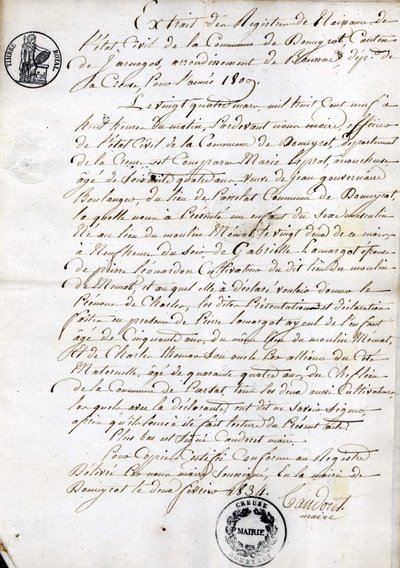 TIMBRE ROYAL
Extrait des Registres de Naissance de
l'état Civil de la Commune de Domeyrot Canton
de Jarnages, arrondissement de Boussac dép. de
la Creuse, Pour l'année 1809
Le vingt quatre mars mil huit Cent neuf à
heures du matin, Pardevant nous maire officier
de l'état Civil de la Commune de Domeyrot, département
de la Creuse est Comparu Marie accoucheuse
âgée de Soixante quatre ans veuve de Jean gouvernaire
Boulanger du lieu de Commune de Domeyrot,
laquelle nous a Présenté un enfant du Sexe masculin
Né au lieu du moulin Menat le vingt deux de ce mois
à Neuf heures du Soir de Gabrielle Lamargot épouse
de pierre Léonardon Cultivateur du dit lieu du moulin
de Menat, et auquel elle a déclaré vouloir donner le
Prénom de Charles, les dites Présentation et déclaration
faites en présence de Pierre Lamargot ayeul de l'enfant
âgé de Cinquante ans, du même lieu du moulin Menat,
Et de Charles Thomas Son oncle Par alliance du Coté
Maternelle, âgé de quarante quatre ans, du
de la Commune de Parsat, tous les deux aussi Cultivateurs
lesquels avec la déclarante ont dit ne Savoir Signer
après qu'il leur a été fait lecture du Présent acte.
Plus bas est Signé Caudoret maire
Pour Copie Certifié Conforme au Registre
Délivré Par nous maire Soussigné, En la mairie de
Domeyrot le deux février 1834.
Caudoret
maire
CREUSE
MAIRIE
DOMEYROT